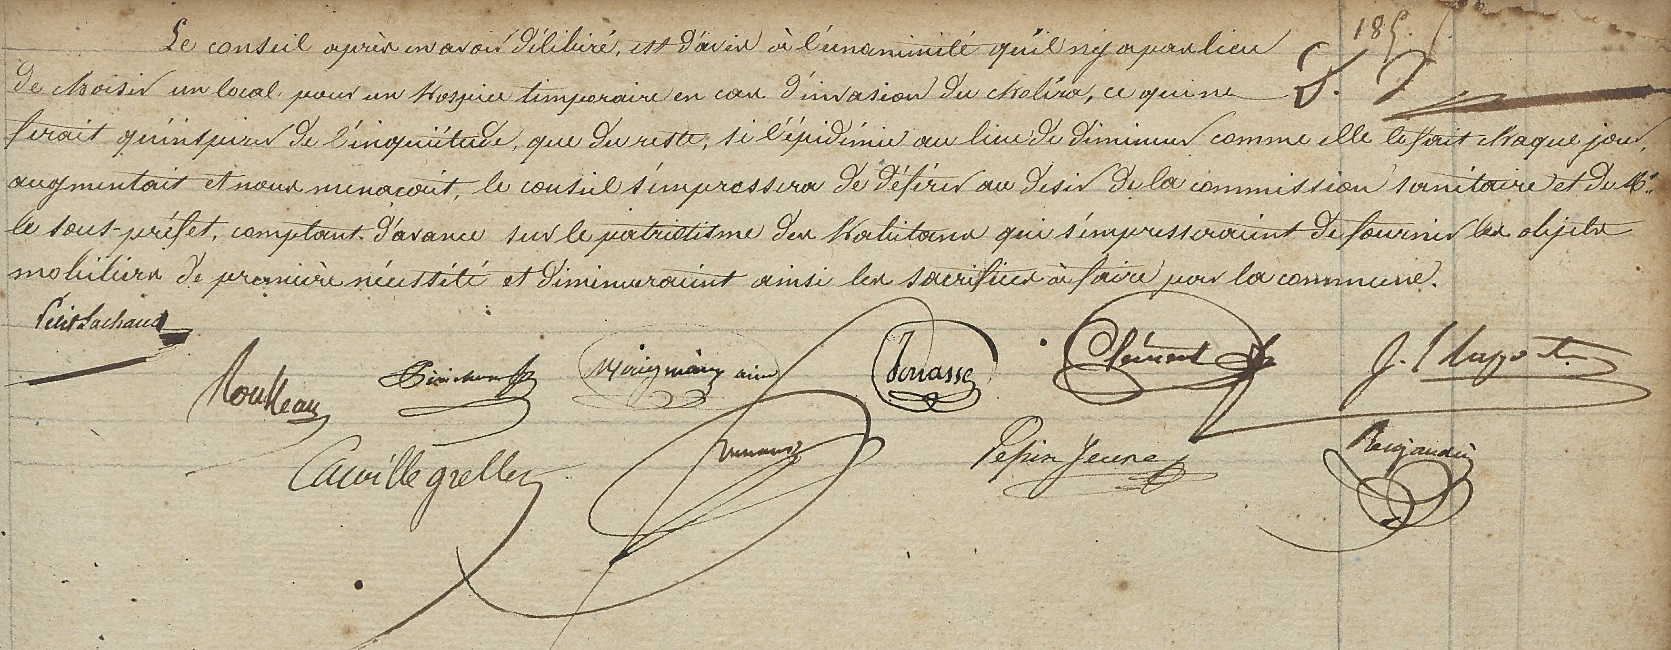 185.
Le conseil après en avoir délibéré, est d'avis à l'unanimité qu'il n'y a pas lieu
de choisir un local pour un hospice temporaire en cas d'invasion du choléra, ce qui ne
ferait qu'inspirer de l'inquiétude, que du reste, si l'épidémie au lieu de diminuer comme elle le fait chaque jour,
augmentait et nous menaçait, le conseil s'empressera de déférer au desir de la commission sanitaire et de Mr.
le sous-préfet, comptant d'avance sur le patriotisme des habitans qui s'empresseraient de fournir les objets
mobiliers de première nécessité et diminueraient ainsi les sacrifices à faire par la commune.
Petit Lachaud
Rousseau
Mérigniàux ainé
Jouasse
Clément
Cacville greller
Pepin Jeune
Beujaudin